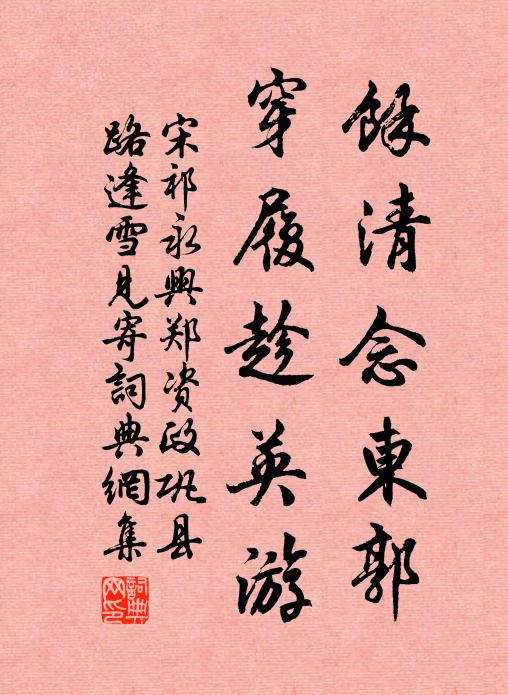 餘清念東郭
穿履趁英游
宋祁永興郑资政巩县
路逢雪見寄詞典網集
詞典网印